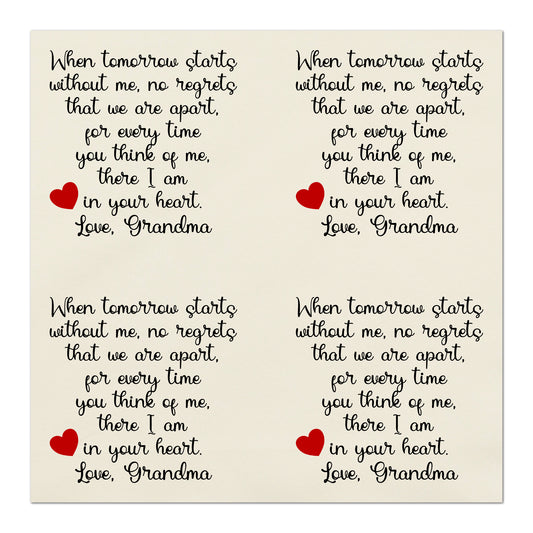 When tomorrow starts
without me, no regrets
that we are apart,
for every time
you think of me,
there I am
in your heart.
Love, Grandma
When tomorrow starts
without me, no regrets
that we are apart,
for every time
you think of me,
there I am
in your heart.
Love, Grandma
When tomorrow starts
without me, no regrets
that we are apart,
for every time
you think of me,
there I am
in your heart.
Love, Grandma
When tomorrow starts
without me, no regrets
that we are apart,
for every time
you think of me,
there I am
in your heart.
Love, Grandma